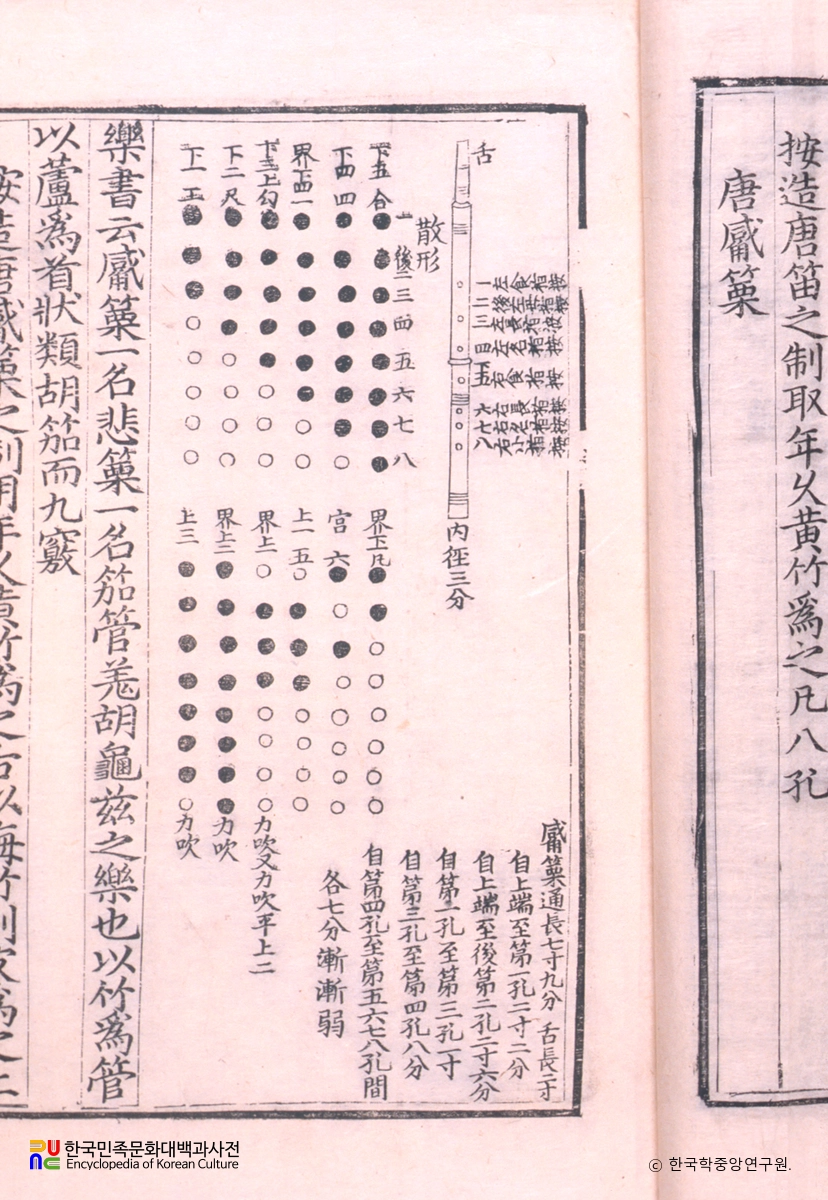 按造唐笛之制取年久黃竹爲之凡八孔
唐觱篥
觱篥通長七寸九分 舌長二寸
自上端至第一孔二寸二分
自上端至後第二孔二寸六分
自第二孔至第三孔一寸
自第三孔至第四孔八分
自第四孔至第五六七八孔間
各七分漸漸弱
舌
一左食指按
二後左母指按
三左長指按
四左名指按
五右食指按
六右長指按
七右名指按
八右小指按
內徑三分
散形
一 後二 三 四 五 六 七 八
下五 合
下四 四
界下四 一
下三 上 勾
下二 尺
下一 工
界下凡
宮 六
上一 五
界上 力吹又力吹平上二
界上二 力吹
上三 力吹
樂書云觱篥一名悲篥一名笳管羗胡龜茲之樂也以竹爲管
以蘆爲首狀類胡笳而九竅
按造唐觱篥之制用年久黃竹爲之舌以海竹削皮爲之上
한국민족문화대백과사전
Encyclopedia of Korean Culture
© 한국학중앙연구원.